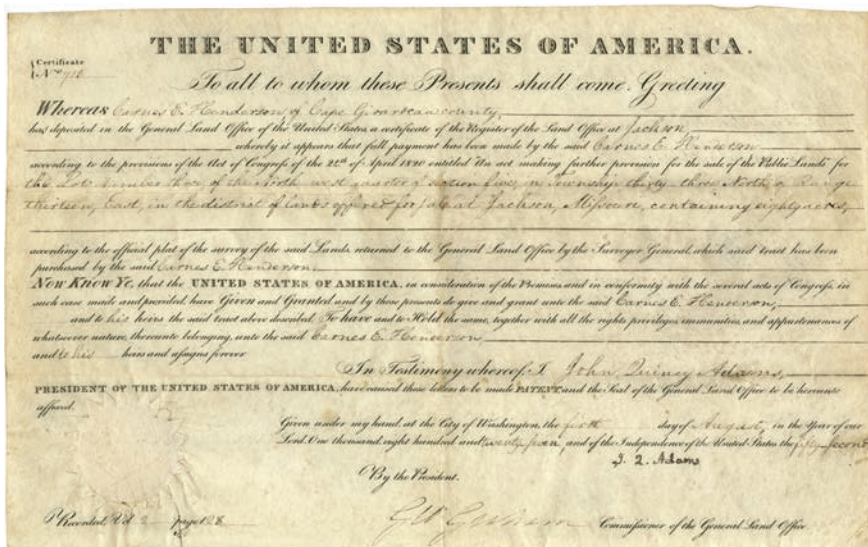 THE UNITED STATES OF AMERICA.
Certificate
No.
To all to whom these Presents shall come, Greeting
Whereas Carnes E. Henderson of Cape Girardeau county,
has deposited in the General Land Office of the United States, a certificate of the Register of the Land Office at Jackson
whereby it appears that full payment has been made by the said Carnes E. Henderson
according to the provisions of the Act of Congress of the 24th of April 1820 entitled "An act making further provision for the sale of the Public Lands" for
the Lot number three, of the North west quarter of section five, in Township thirty three North, of Range
thirteen, East, in the district of lands offered for sale at Jackson, Missouri, containing eighty acres,
according to the official plat of the survey of the said Lands, returned to the General Land Office by the Surveyor General, which said tract has been
purchased by the said Carnes E. Henderson,
Now Know Ye, that the UNITED STATES OF AMERICA, in consideration of the Premises, and in conformity with the several acts of Congress, in
such case made and provided, have Given and Granted and by these presents do give and grant unto the said Carnes E. Henderson,
and to his heirs the said tract above described. To have and to Hold the same, together with all the rights privileges, immunities, and appurtenances of
whatsoever nature, thereunto belonging, unto the said Carnes E. Henderson,
and to his heirs and assigns forever
In Testimony whereof, I John Quincy Adams,
PRESIDENT OF THE UNITED STATES OF AMERICA, have caused these letters to be made PATENT, and the Seal of the General Land Office to be hereunto
affixed.
Given under my hand, at the City of Washington, the day of August, in the Year of our
Lord, One thousand, eight hundred and twenty seven, and of the Independence of the United States the fifty second
J. Q. Adams
By the President.
Recorded, Vol 2 page 128
Commissioner of the General Land Office